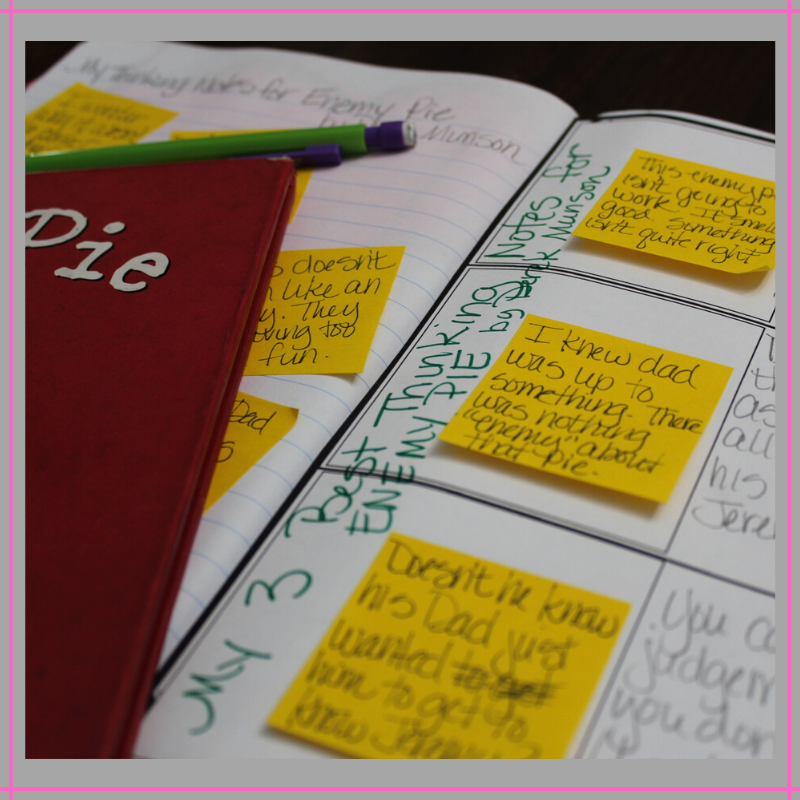 My Thinking Notes for Enemy Pie
Munson
Pie
s doesn't
like an
y. They
ving too
fun.
Dad
s
My 3 Best Thinking Notes for
ENEMY PIE by Derek Munson
This enemy p
isn't going to
work. It smel
good. Something
isn't quite right
I knew dad
was up to
something. There
was nothing
"enemy" about
that pie.
Doesn't he know
his Dad just
wanted
him to get to
know Jeremy?
th
as
all
his
Jere
You ca
judgem
you don